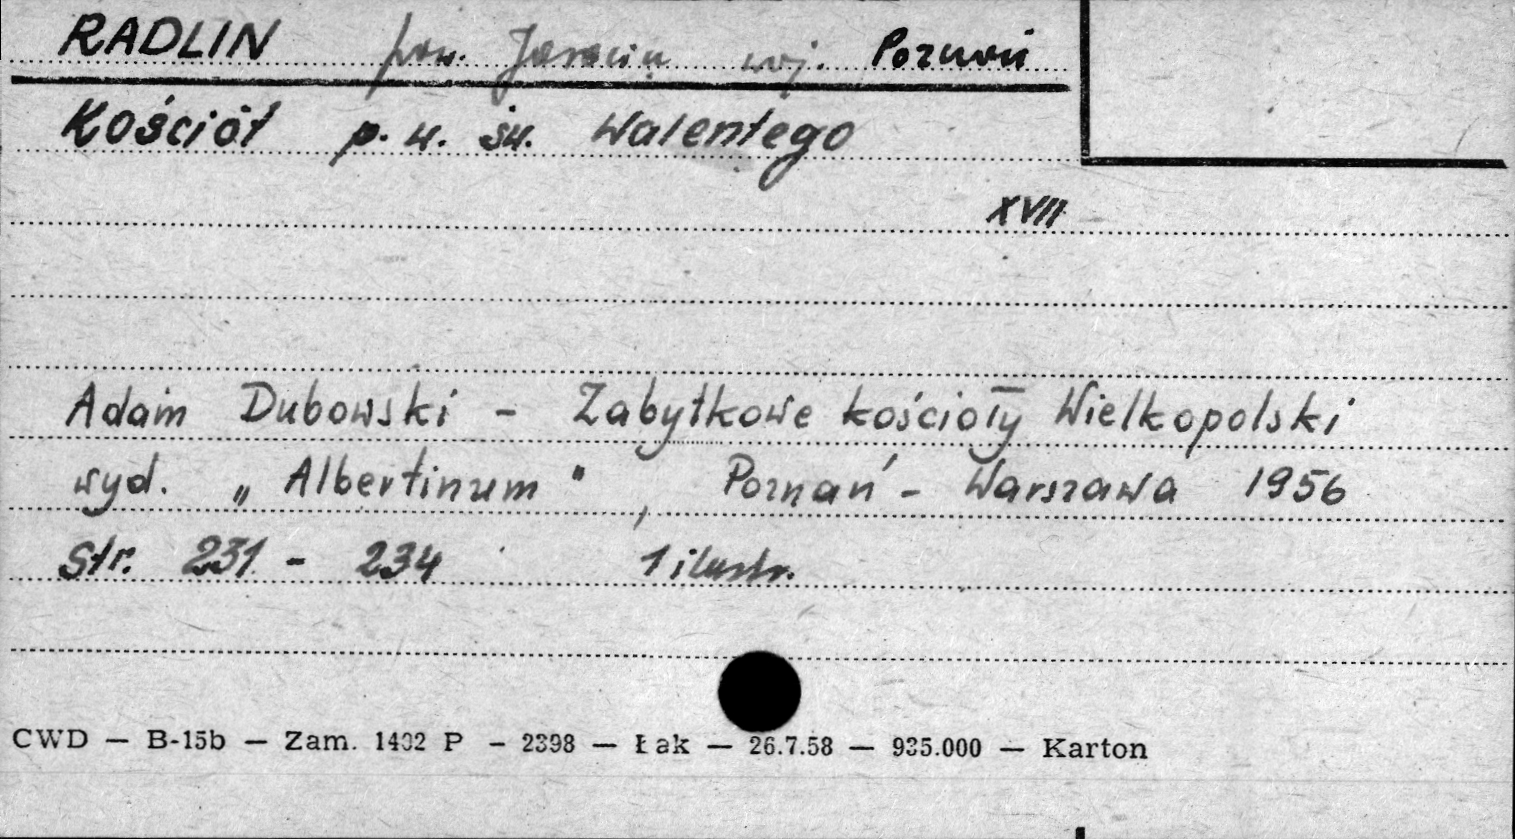 RADLIN pow. Jarocin woj. Poznań
Kościół p. w. św. Walentego
XVII
Adam Dubowski - Zabytkowe kościoły Wielkopolski
wyd. „Albertinum", Poznań - Warszawa 1956
Str. 231 - 234 1 ilustr.
CWD — B-15b — Zam. 1432 P - 2398 — Łak — 26.7.58 — 935.000 — Karton